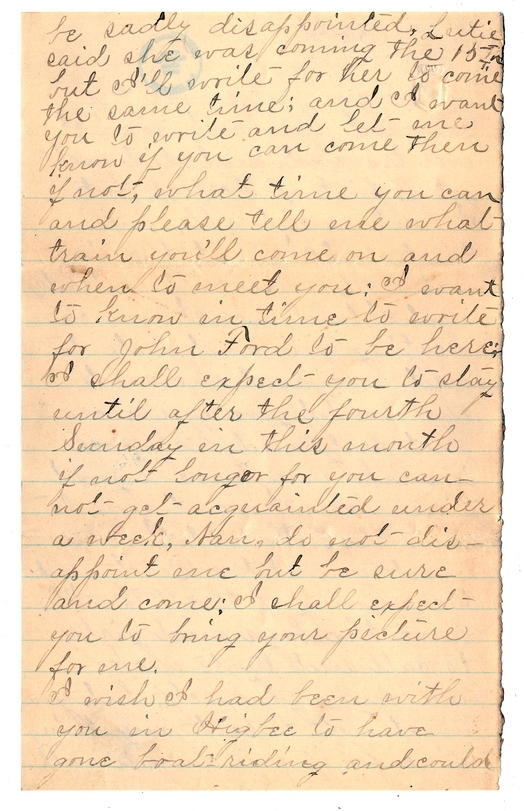 be sadly disappointed, Lutie
said she was coming the 15th
but I'll write for her to come
the same time; and I want
you to write and let me
know if you can come then
if not, what time you can
and please tell me what
train you'll come on and
when to meet you: I want
to know in time to write
for John Ford to be here;
I shall expect you to stay
until after the fourth
Sunday in this month
if not longer for you can-
not get acquainted under
a week, Nan, do not dis-
appoint me but be sure
and come; I shall expect
you to bring your picture
for me.
I wish I had been with
you in Higbee to have
gone boat-riding and could